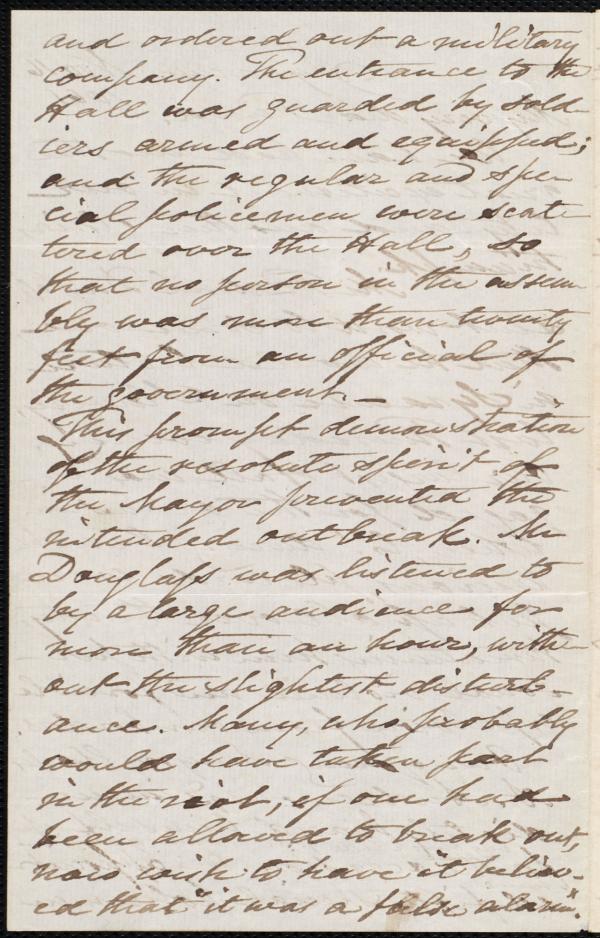 and ordered out a military
company. The entrance to the
Hall was guarded by sold-
iers armed and equipped;
and the regular and spe-
cial policemen were scat-
tered over the Hall, so
that no person in the assem-
bly was more than twenty
feet from an official of
the government. —
This prompt demonstration
of the resolute spirit of
the Mayor prevented the
intended outbreak. Mr
Douglass was listened to
by a large audience for
more than an hour, with-
out the slightest disturb-
ance. Many, who probably
would have taken part
in the riot, if one had
been allowed to break out,
now wish to have it believ-
ed that "it was a false alarm".